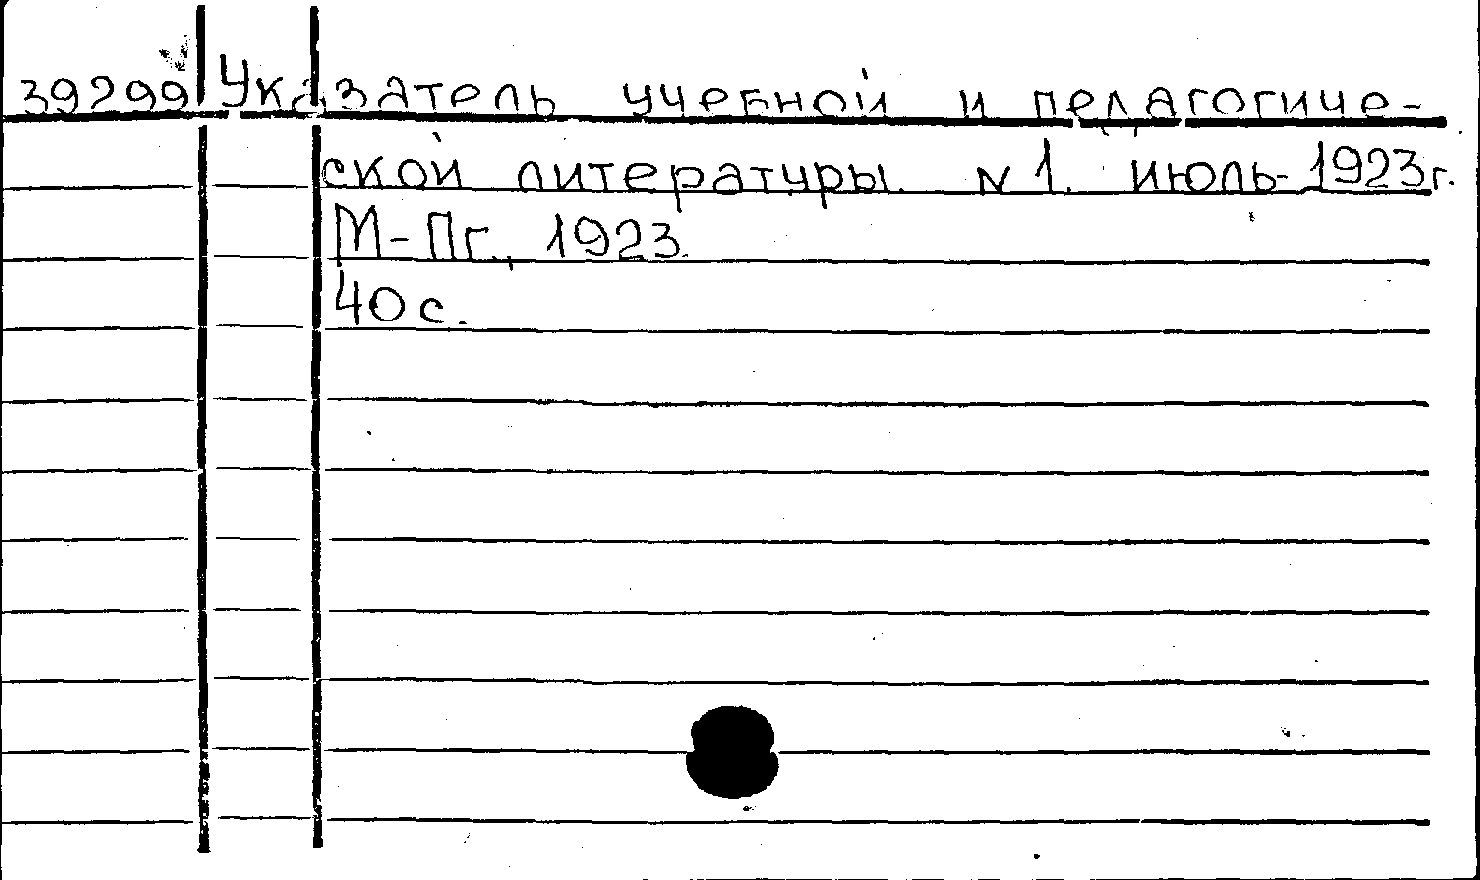 39299 Указатель учебной и педагогиче-
ской литературы. N 1. июль- 1923г.
М-Пг., 1923.
40 с.